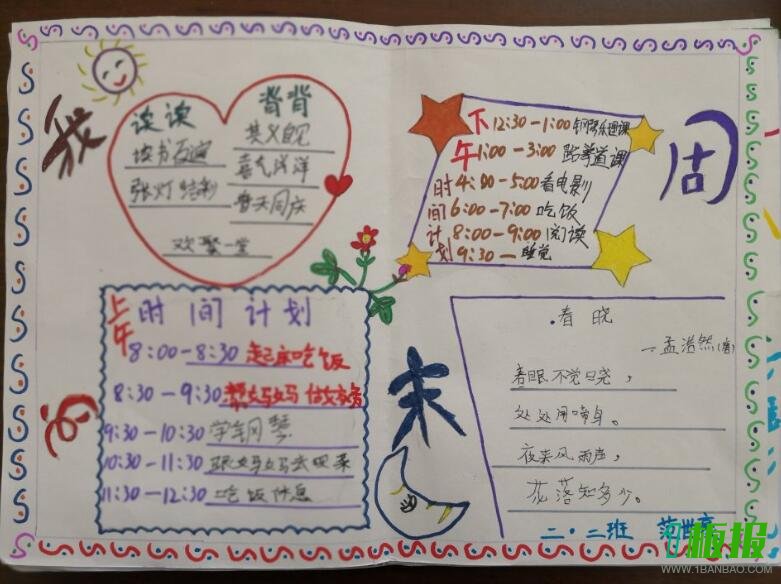 我
的
周
末
读读 背背
读书
张灯结彩
喜气洋洋
普天同庆
欢聚一堂
上午
时间计划
8:00-8:30 起床吃饭
8:30-9:30 帮妈妈做家务
9:30-10:30 学钢琴
10:30-11:30 跟妈妈去买菜
11:30-12:30 吃饭休息
下午时间计划
12:30-1:00 钢琴乐理课
1:00-3:00 跆拳道课
4:00-5:00 看电影
6:00-7:00 吃饭
8:00-9:00 阅读
9:30- 睡觉
·春晓
—孟浩然(唐)
春眠不觉晓,
处处闻啼鸟。
夜来风雨声,
花落知多少。
二·二班 范世
梅报
WWW.1BANBAO.COM